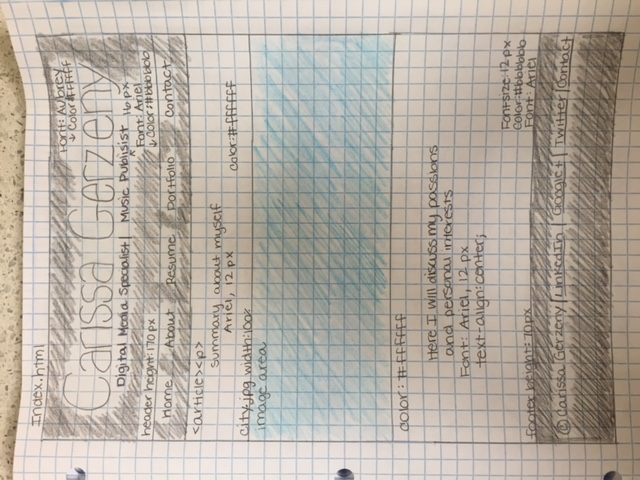 Index.html
Font: Aubrey
↓ Color#ffffff
Carissa Gerzeny
Digital Media Specialist| Music Publisist 16px
Font: Ariel
↓ Color:#bbbbbb
header height:170px
Home About Resume Portfolio Contact
<article><p>
summary about myself
Ariel, 12 px
color:#ffffff
city.jpg width:100%
image area
color: #ffffff
Here I will discuss my passions
and personal interests
Font: Ariel, 12 px
text-align:center;
Fontsize:12px
Color:#bbbbbb
Font: Ariel
footer height:70px
© Carissa Gerzeny|LinkedIn | Google+| Twitter|Contact